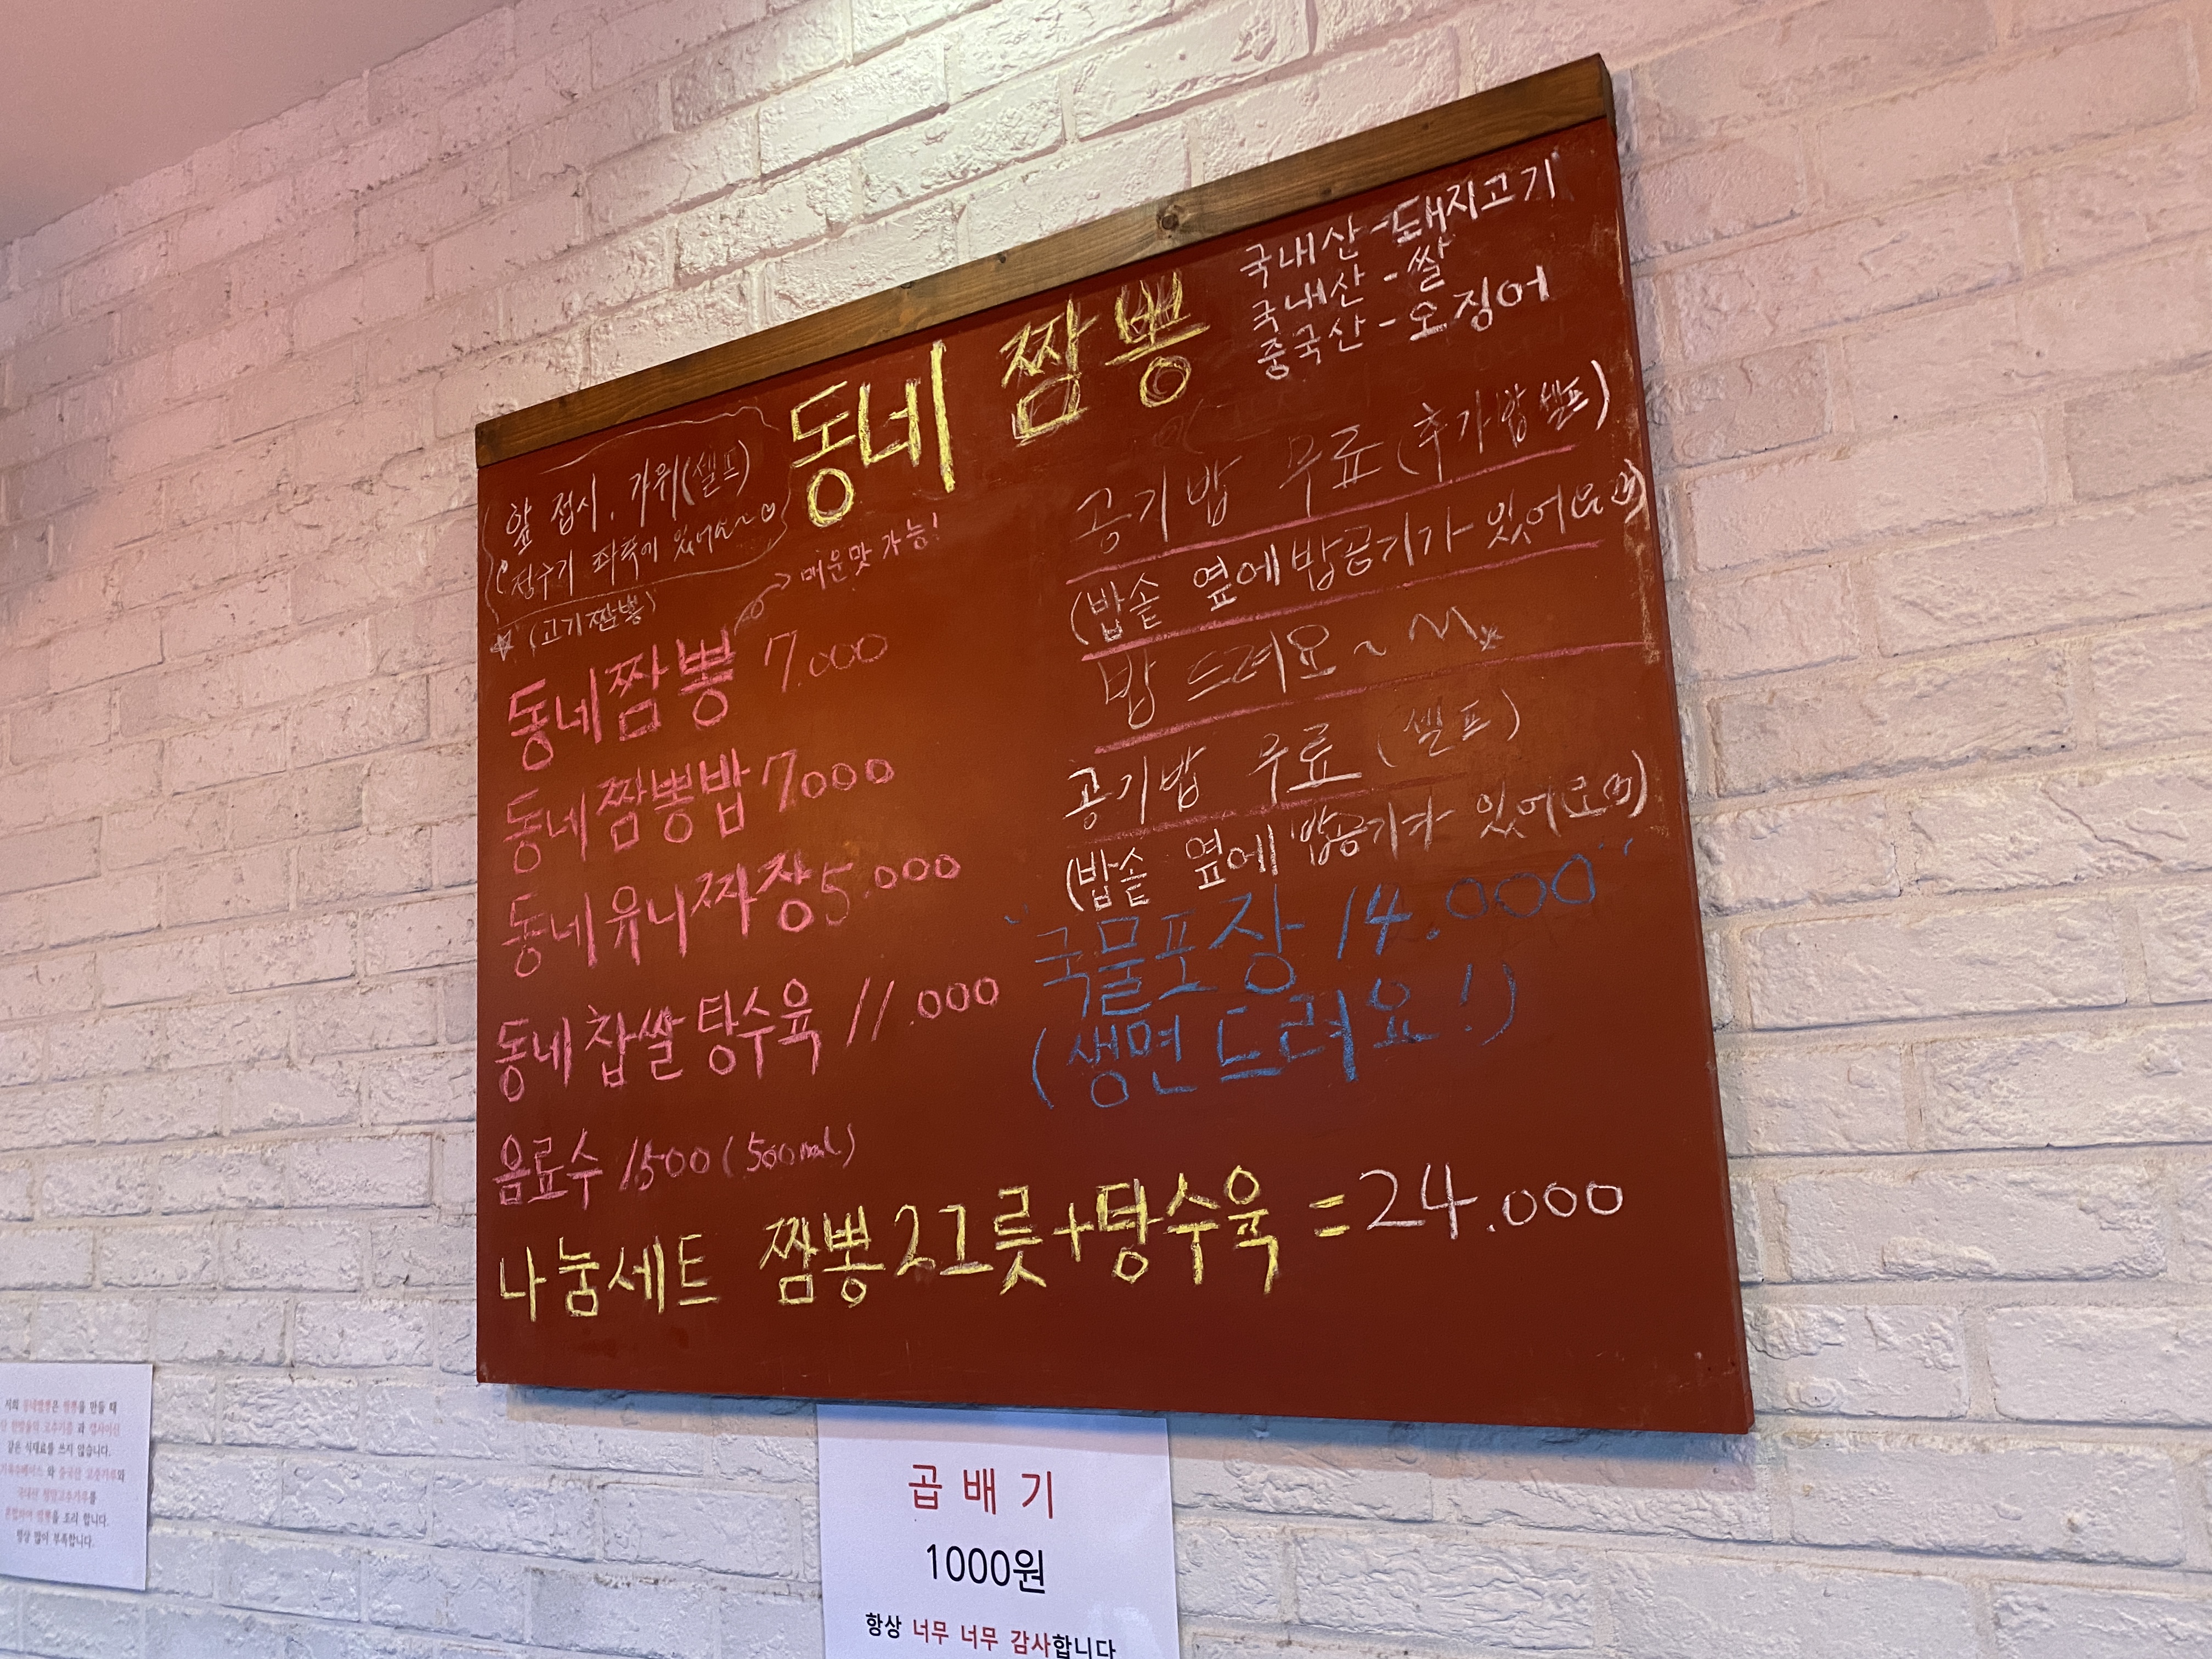 동네 짬뽕
국내산 - 돼지고기
국내산 - 쌀
중국산 - 오징어
앞 접시, 가위(셀프)
정수기 좌측에 있어요~♡
☆ (고기짬뽕)
→ 매운맛 가능!
동네짬뽕 7.000
동네짬뽕밥 7000
동네유니짜장 5.000
동네찹쌀탕수육 11.000
음료수 1500 (500ml)
공기밥 무료 (추가밥 셀프)
(밥솥 옆에 밥공기가 있어요)
밥 드려요~
공기밥 무료 (셀프)
(밥솥 옆에 밥공기가 있어요)
"국물포장 14.000"
(생면 드려요!)
나눔세트 짬뽕2그릇+탕수육 = 24.000
저희 동네짬뽕은 짬뽕을 만들 때
같은 식재료를 쓰지 않습니다.
항상 많이 부족합니다.
곱배기
1000원
항상 너무 너무 감사합니다